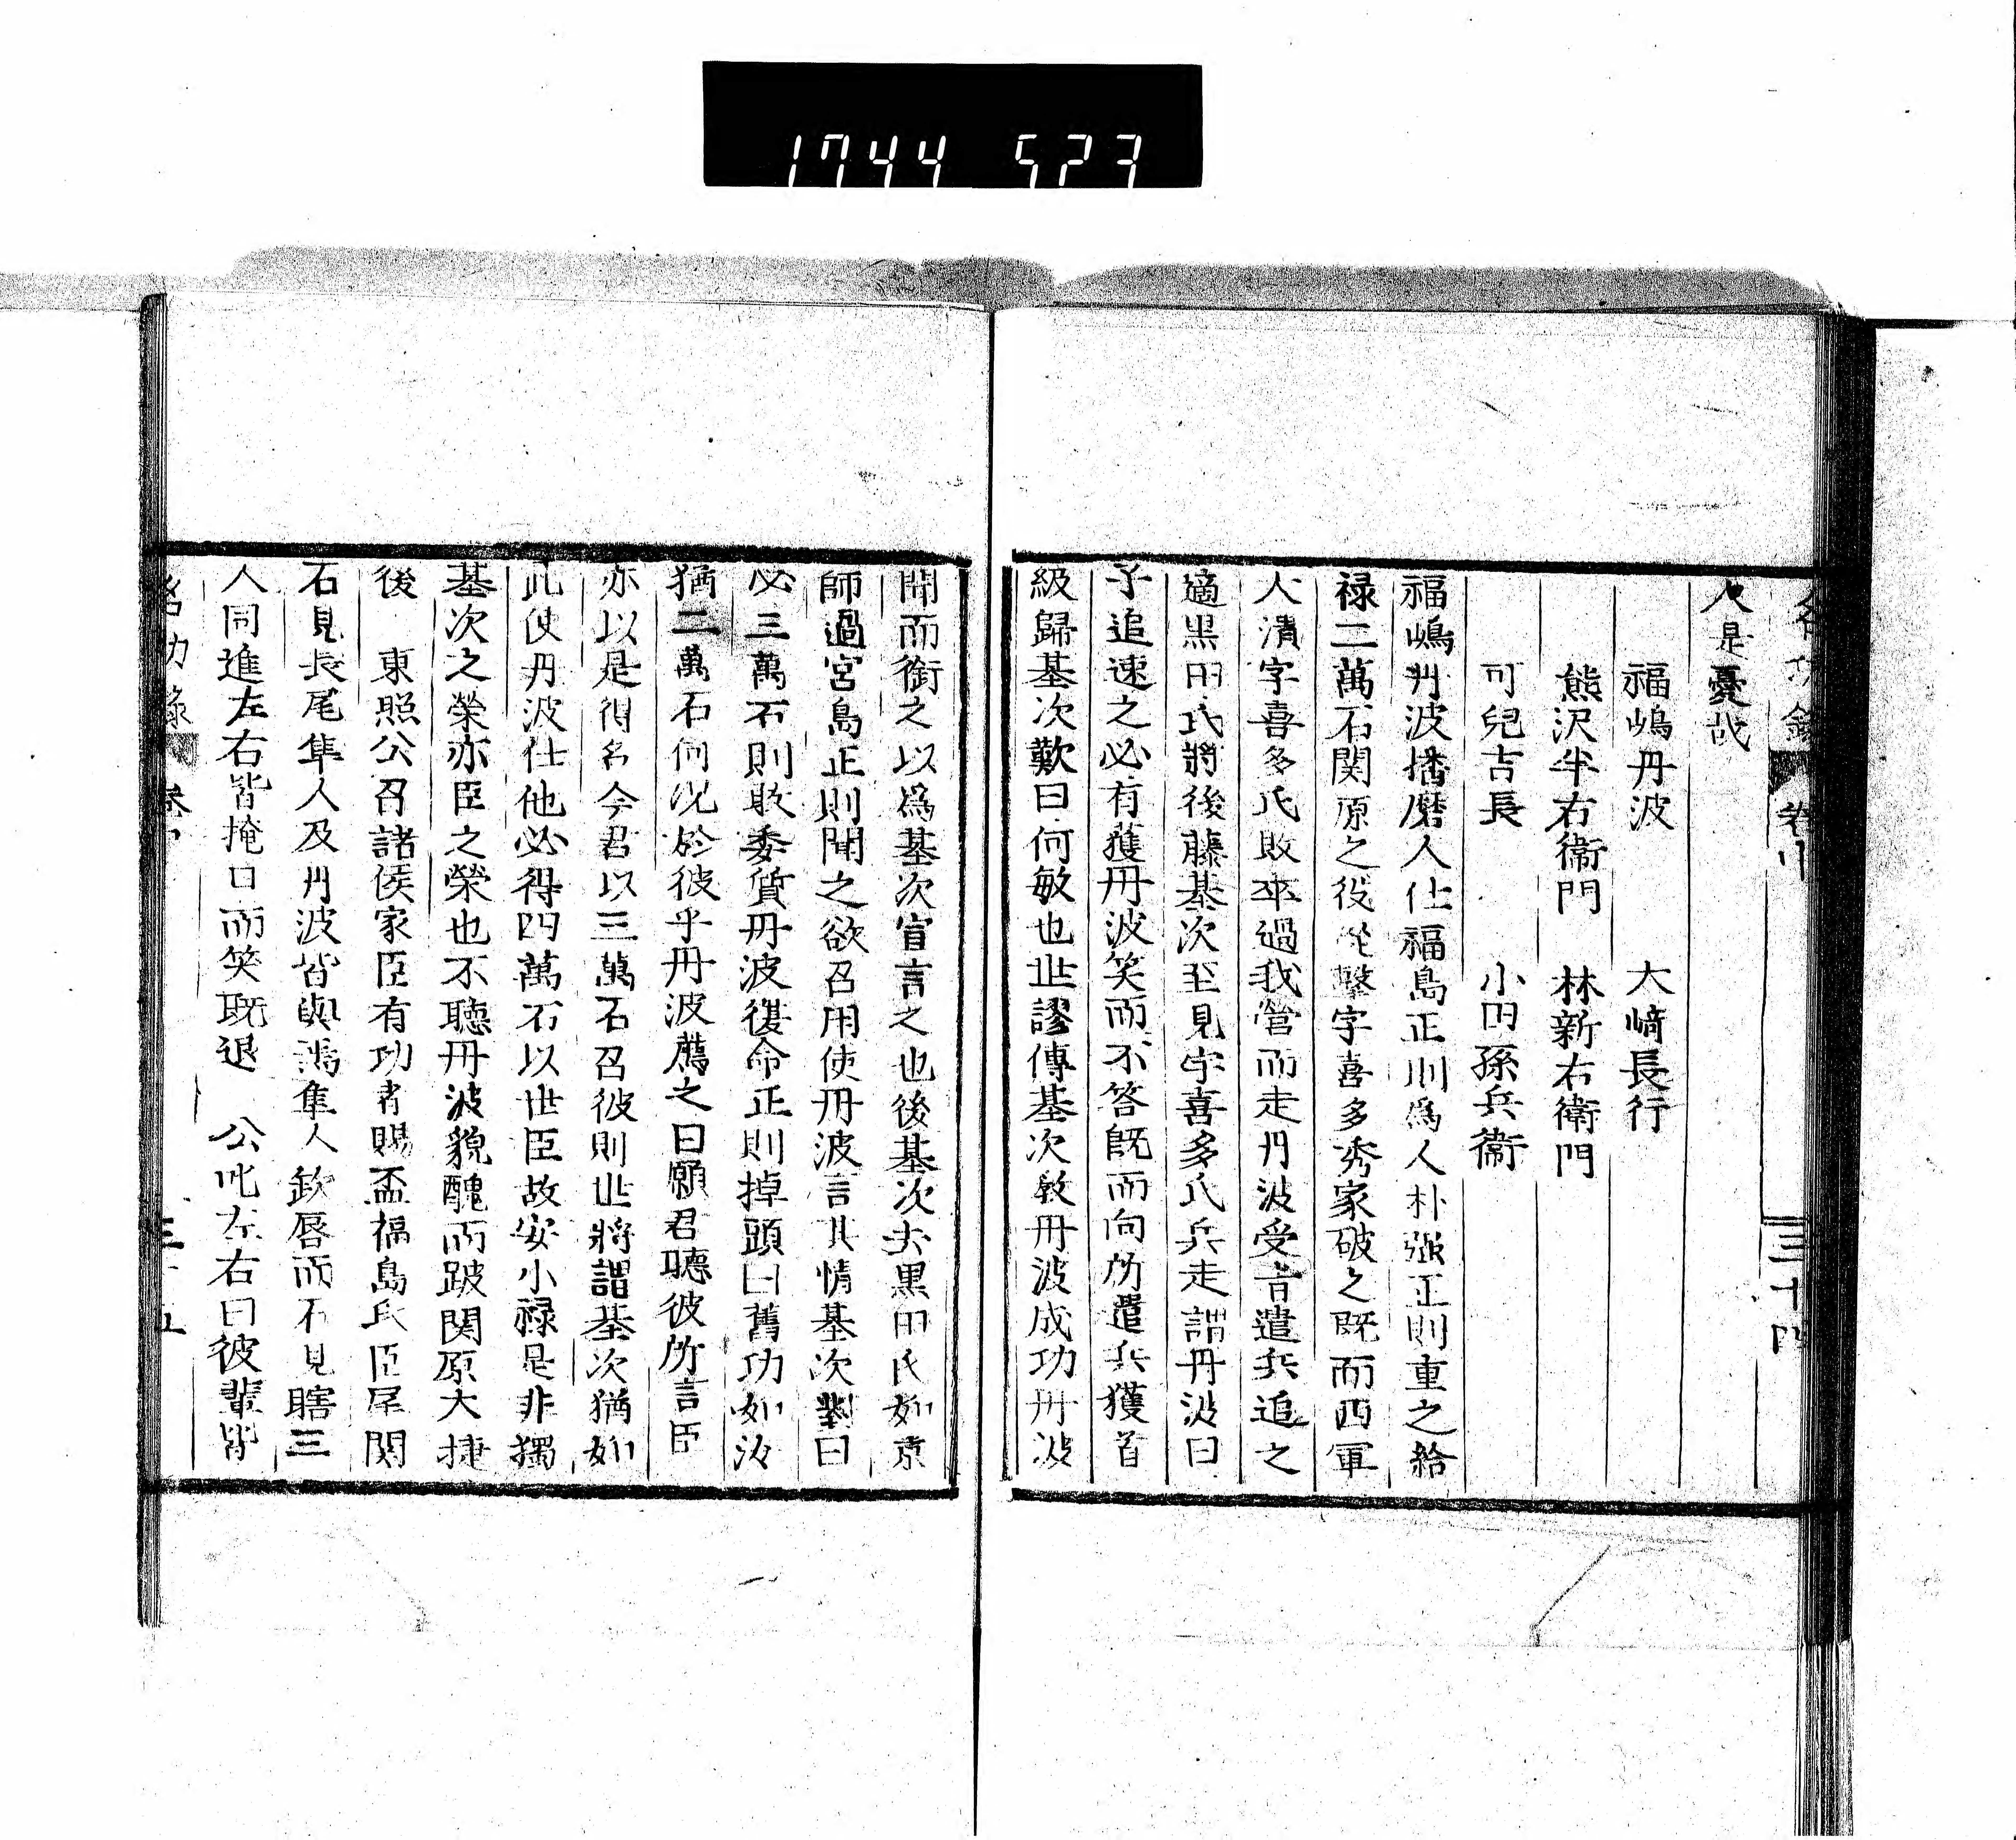 1744 523
名功錄
卷
三十四
人是憂哉
福嶋丹波 大﨑長行
熊沢半右衞門 林新右衛門
可兒吉長 小田孫兵衞
福嶋丹波播磨人仕福島正則爲人朴强正則重之給
禄二萬石関原之役從擊宇喜多秀家破之既而西軍
大潰宇喜多氏敗卒過我營而走丹波受首遣兵追之
適黒田氏將後藤基次至見宇喜多氏兵走謂丹波曰
予追速之必有獲丹波笑而不答既而向所遣兵獲首
級歸基次歎曰何敏也世謬傳基次敎丹波成功丹波
聞而銜之以爲基次宣言之也後基次去黒田氏如京
師過宮島正則聞之欲召用使丹波言其情基次對曰
必三萬石則敢委質丹波復命正則掉頭曰舊功如汝
猶二萬石何况於彼乎丹波薦之曰願君聽彼所言臣
亦以是得名今君以三萬石召彼則世將謂基次猶如
此使丹波仕他必得四萬石以世臣故安小禄是非獨
基次之榮亦臣之榮也不聽丹波貌醜而跛関原大捷
後 東照公召諸侯家臣有功者賜盃福島氏臣尾関
石見長尾隼人及丹波皆與焉隼人欽唇而石見瞎三
人同進左右皆掩口而笑既退 公叱左右曰彼輩皆
名功錄
卷
三十五